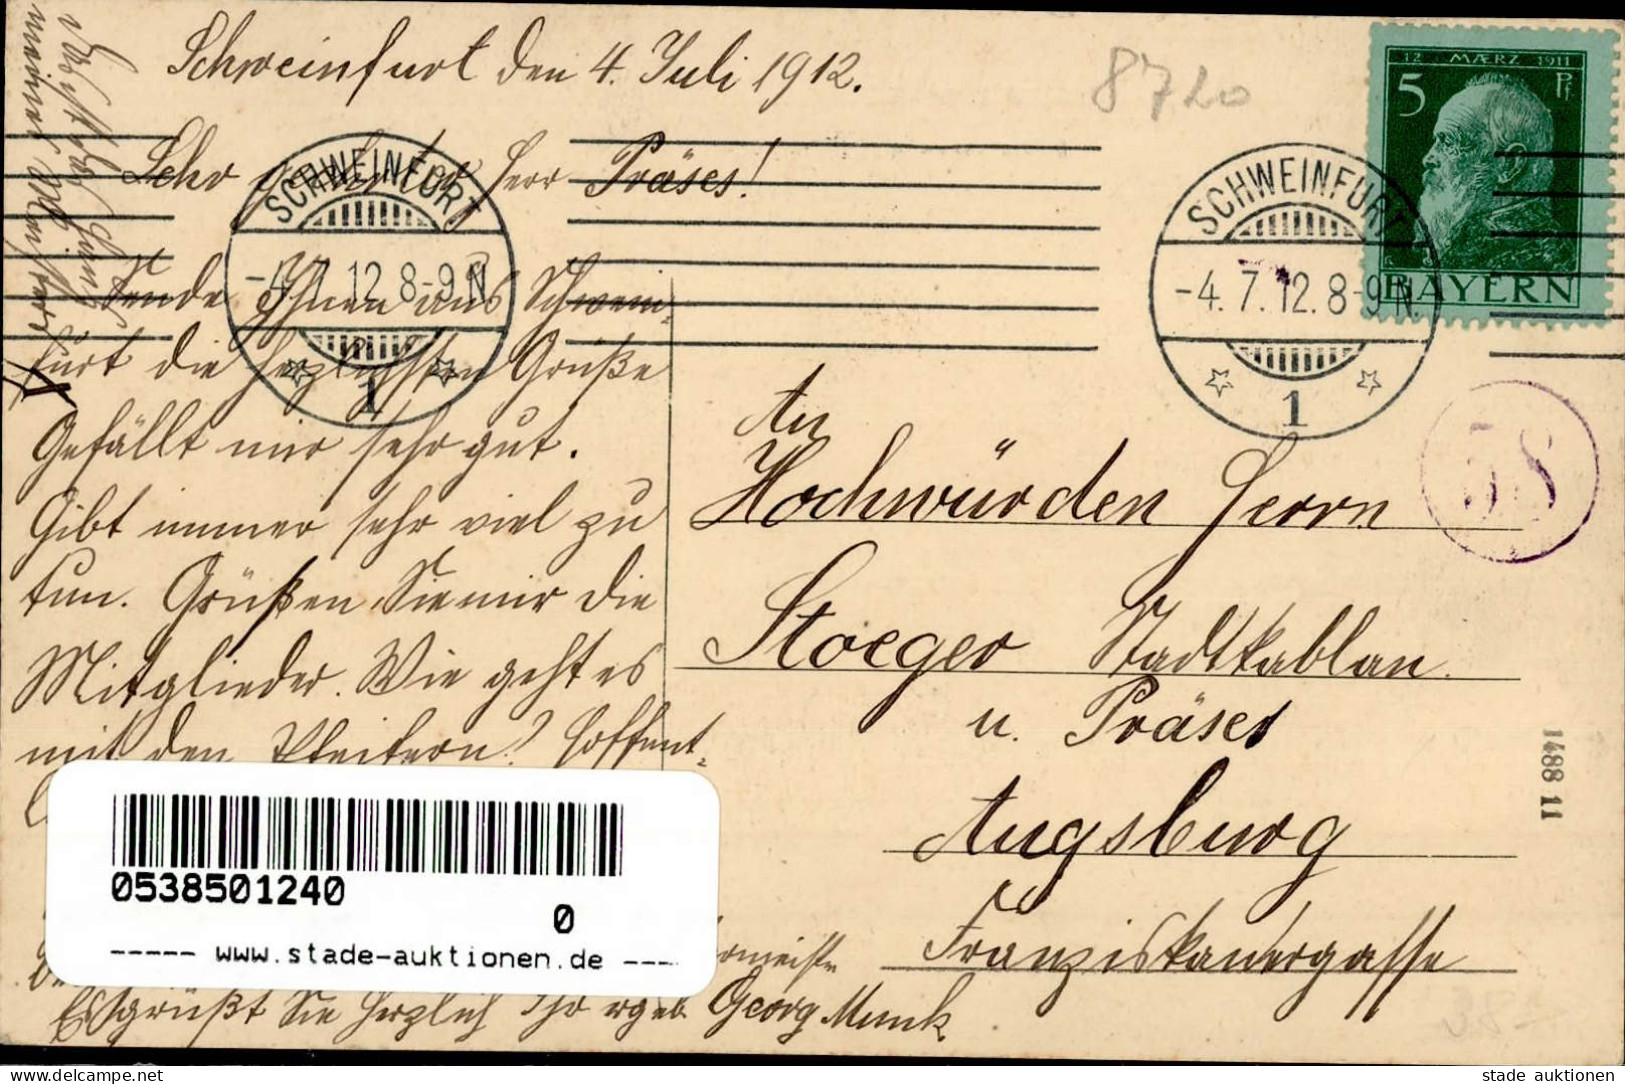 Schweinfurt den 4. Juli 1912.
Sehr geehrter Herr Präses!
Sende Ihnen aus Schwein-
furt die herzlichsten Grüße
Gefällt mir sehr gut.
Gibt immer sehr viel zu
tun. Grüßen Sie mir die
Mitglieder. Wie geht es
mit den Pfeifern? Hoffent-
Es grüßt Sie herzlich Ihr ergeb. Georg Munk
meiner
8720
12 MÆRZ 1911
5 Pf
BAYERN
SCHWEINFURT
-4.7.12.8-9N.
1
SCHWEINFURT
-4.7.12.8-9N.
1
58
An
Hochwürden Herrn
Stoeger Stadtkablan
u. Präses
Augsburg
Franziskanergasse
1488 11
0538501240
0
----- www.stade-auktionen.de ----
delcampe.net
stade auktionen